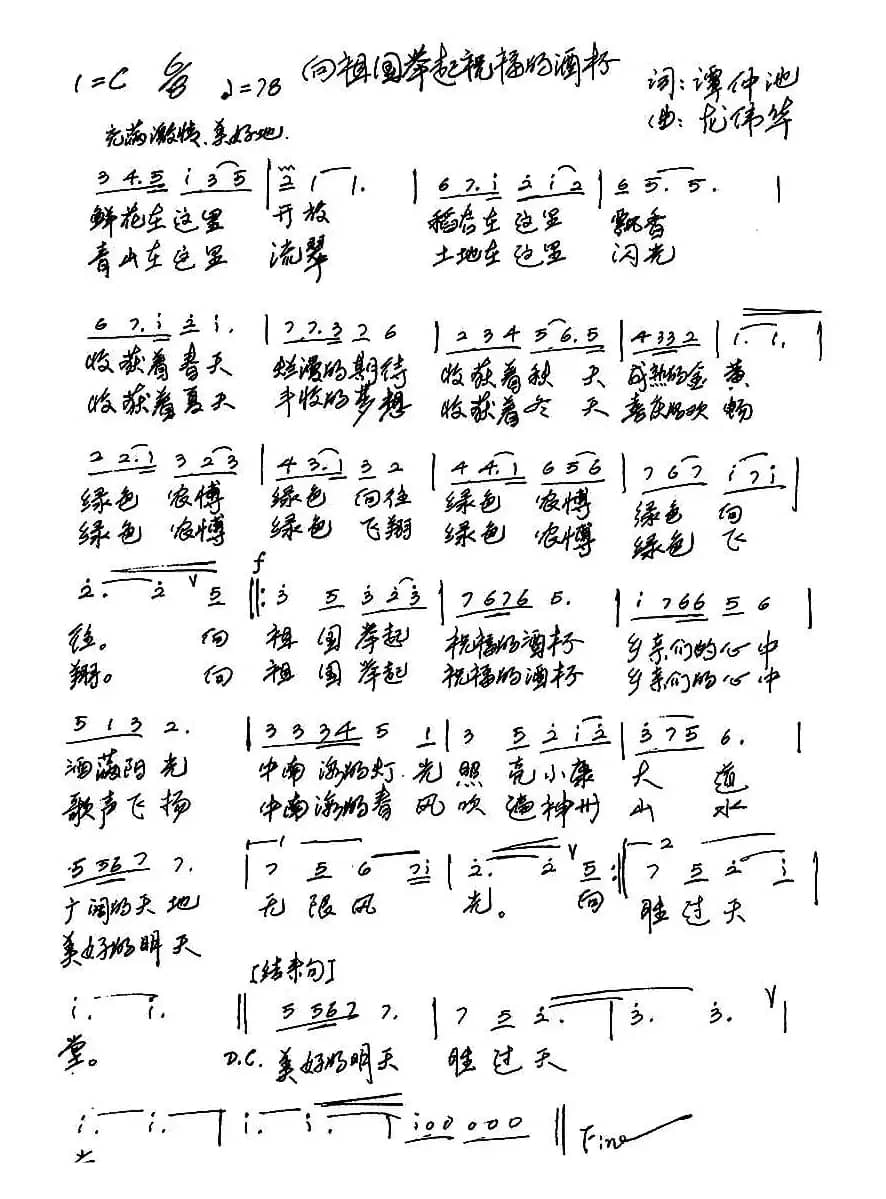 向祖国举起祝福的酒杯
1=C 6/8 ♩=78
词:谭仲池
曲:龙伟华
充满激情、美好地
3 4.5 i 3 5 | 2 1 1. | 6 7.i 2 i 2 | 6 5. 5. |
鲜花在这里 开放 稻谷在这里 飘香
青山在这里 流翠 土地在这里 闪光
6 7.i 2 i. | 7 7.3 7 6 | 2 3 4 5 6.5 | 4 3 3 2 | 1. 1. |
收获着春天 烂漫的期待 收获着秋天 成熟的金黄
收获着夏天 丰收的梦想 收获着冬天 喜庆的欢畅
2 2.1 3 2 3 | 4 3.1 3 2 | 4 4.1 6 5 6 | 7 6 7 i 7 i |
绿色 农博 绿色 向往 绿色 农博 绿色 向
绿色 农博 绿色 飞翔 绿色 农博 绿色 飞
f
2. 2 V 5 ‖: 3 5 3 2 3 | 7 6 7 6 5. | i 7 6 6 5 6 |
往。 向 祖国举起 祝福的酒杯 乡亲们的心中
翔。 向 祖国举起 祝福的酒杯 乡亲们的心中
5 1 3 2. | 3 3 3 4 5 1 | 3 5 2 i 2 | 3 7 5 6. |
洒满阳光 中南海的灯光 照亮小康 大道
歌声飞扬 中南海的春风 吹遍神州 山水
5 5 6 7 7. | 1 7 5 6 7 i | 2. 2 V 5 :‖ 2 7 5 2 i |
广阔的天地 无限风 光。 向 胜过天
美好的明天
[结束句]
i. i. ‖ 5 5 6 7 7. | 7 5 2. | 3. 3. V |
堂。 D.C. 美好的明天 胜过天
i. i. | i. i. | i 0 0 0 0 0 ‖ Fine